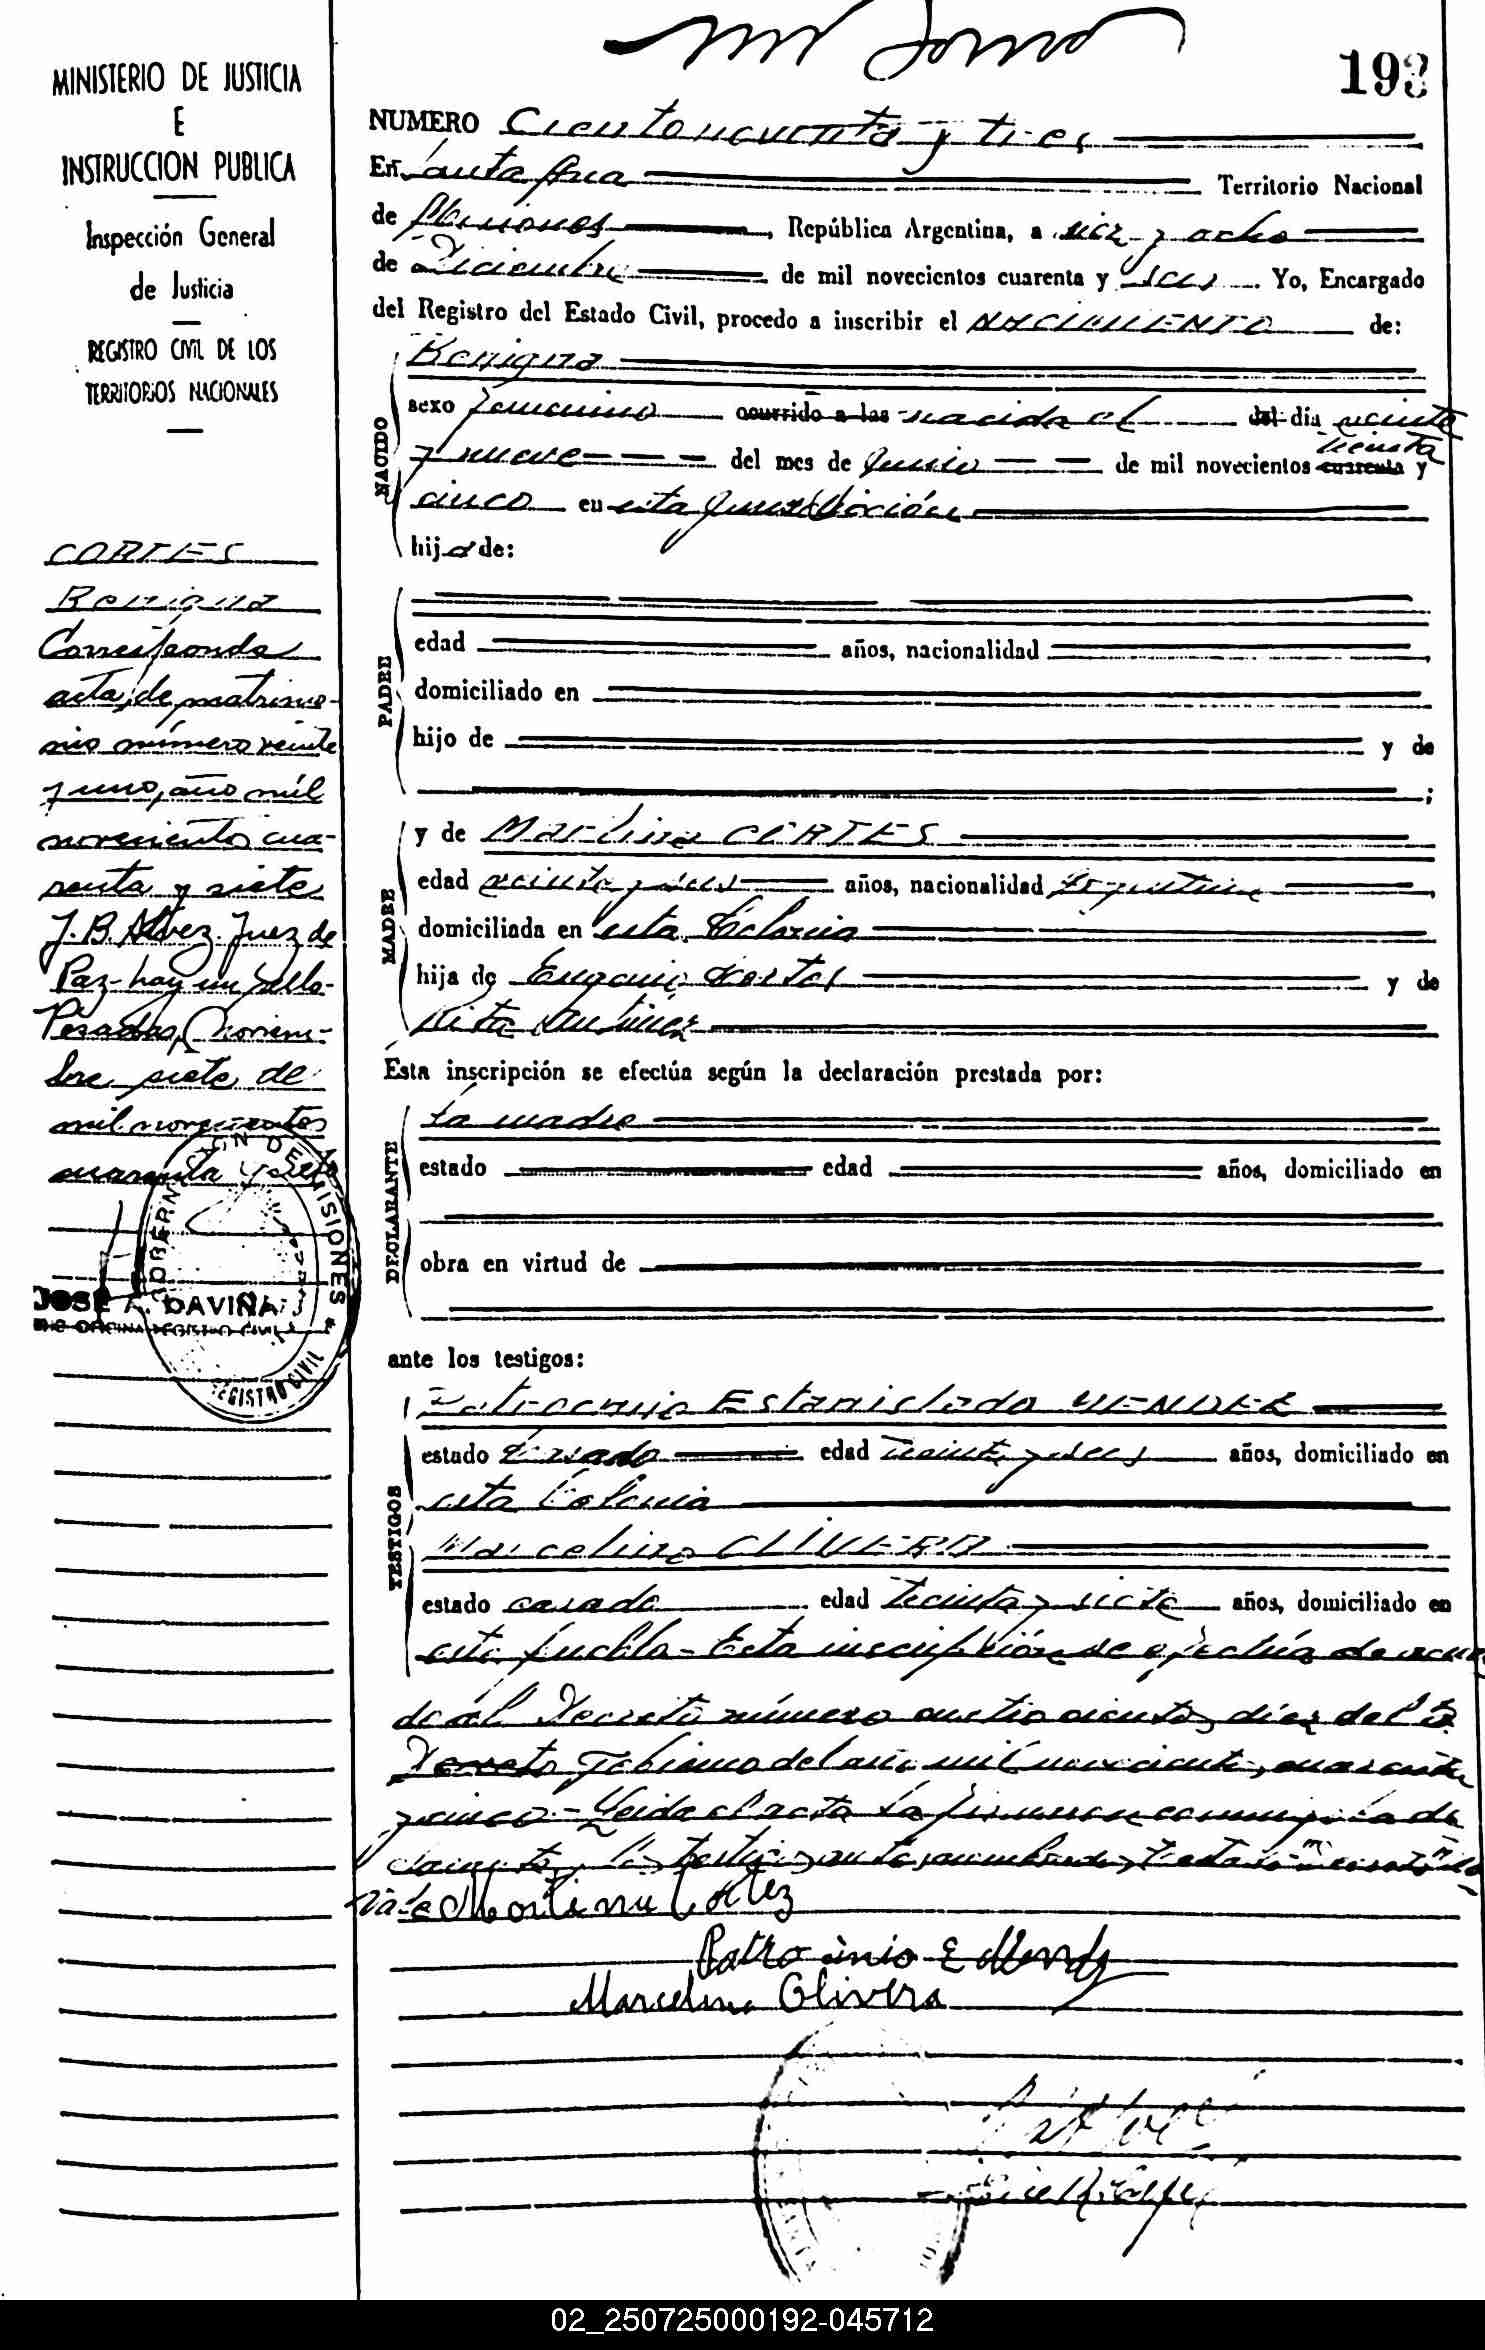 193
MINISTERIO DE JUSTICIA
E
INSTRUCCION PUBLICA
Inspección General
de Justicia
REGISTRO CIVIL DE LOS
TERRITORIOS NACIONALES
CORTES
Benigna
Corresponde
acta de matrimo-
nio número veinte
y uno, año mil
novecientos cua-
renta y siete
J. B. Alvez. Juez de
Paz - hay un sello -
Posadas, Noviem-
bre siete de
mil novecientos
cuarenta y siete
GOBERNACION DE MISIONES
REGISTRO CIVIL
JOSE A. DAVIÑA
ENC. OFICINA REGISTRO CIVIL
NUMERO Ciento noventa y tres
En Santa Ana Territorio Nacional
de Misiones, República Argentina, a diez y ocho
de Diciembre de mil novecientos cuarenta y seis. Yo, Encargado
del Registro del Estado Civil, procedo a inscribir el NACIMIENTO de:
NACIDO
Benigna
sexo femenino ocurrido a las nacida el del día veinte
y nueve del mes de Junio de mil novecientos cuarenta treinta y
cinco en esta Jurisdicción
hija de:
PADRE
edad años, nacionalidad
domiciliado en
hijo de y de
;
MADRE
y de Martina CORTES
edad veinte y seis años, nacionalidad Argentina
domiciliada en esta Colonia
hija de Eugenio Cortes y de
Rita
Esta inscripción se efectúa según la declaración prestada por:
DECLARANTE
La madre
estado edad años, domiciliado en
obra en virtud de
ante los testigos:
TESTIGOS
Patrocinio Estanislado MENDEZ
estado Casado edad treinta y seis años, domiciliado en
esta Colonia
Marcelino OLIVERA
estado casado edad treinta y siete años, domiciliado en
este Pueblo - Esta inscripción se efectúa de acuer
do al Decreto número cuatrocientos diez del S.
Decreto Gobierno del año mil novecientos cuarenta
y cinco - Leida el acta la firman conmigo la de
clarante y los testigos antes nombrados, testado
vale Martina Cortez
Patrocinio E Mendez
Marcelino Olivera
02_250725000192-045712